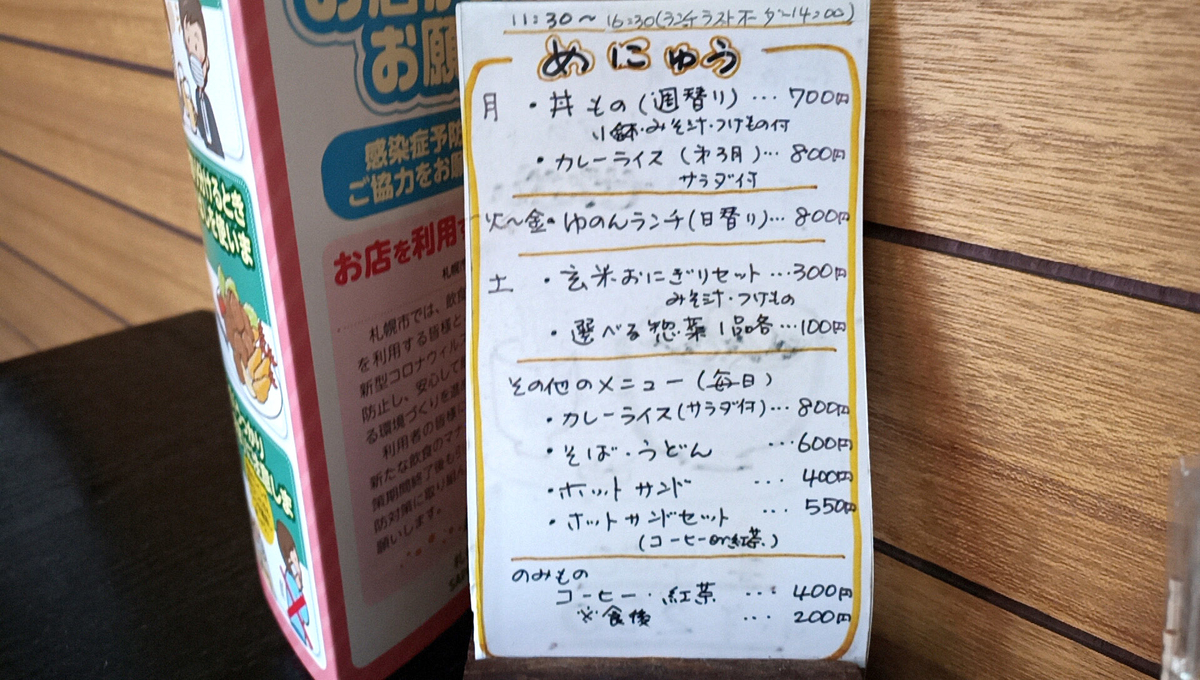 お店
お願
感染症予防
ご協力をお願
お店を利用す
札幌
札幌市では、飲食
を利用する皆様と
新型コロナウィル
防止し、安心して
る環境づくりを進
利用者の皆様に
新たな飲食のマナ
策期間終了後も
防対策に取り組
願いします。
11:30〜16:30(ランチラストオーダー14:00)
めにゅう
月 ・丼もの(週替り)…700円
小鉢・みそ汁・つけもの付
・カレーライス(第3月)…800円
サラダ付
火〜金・ゆのんランチ(日替り)…800円
土 ・玄米おにぎりセット…300円
みそ汁・つけもの
・選べる惣菜1品各…100円
その他のメニュー(毎日)
・カレーライス(サラダ付)…800円
・そば・うどん …600円
・ホットサンド …400円
・ホットサンドセット …550円
(コーヒーor紅茶)
のみもの
コーヒー・紅茶 …400円
※食後 …200円